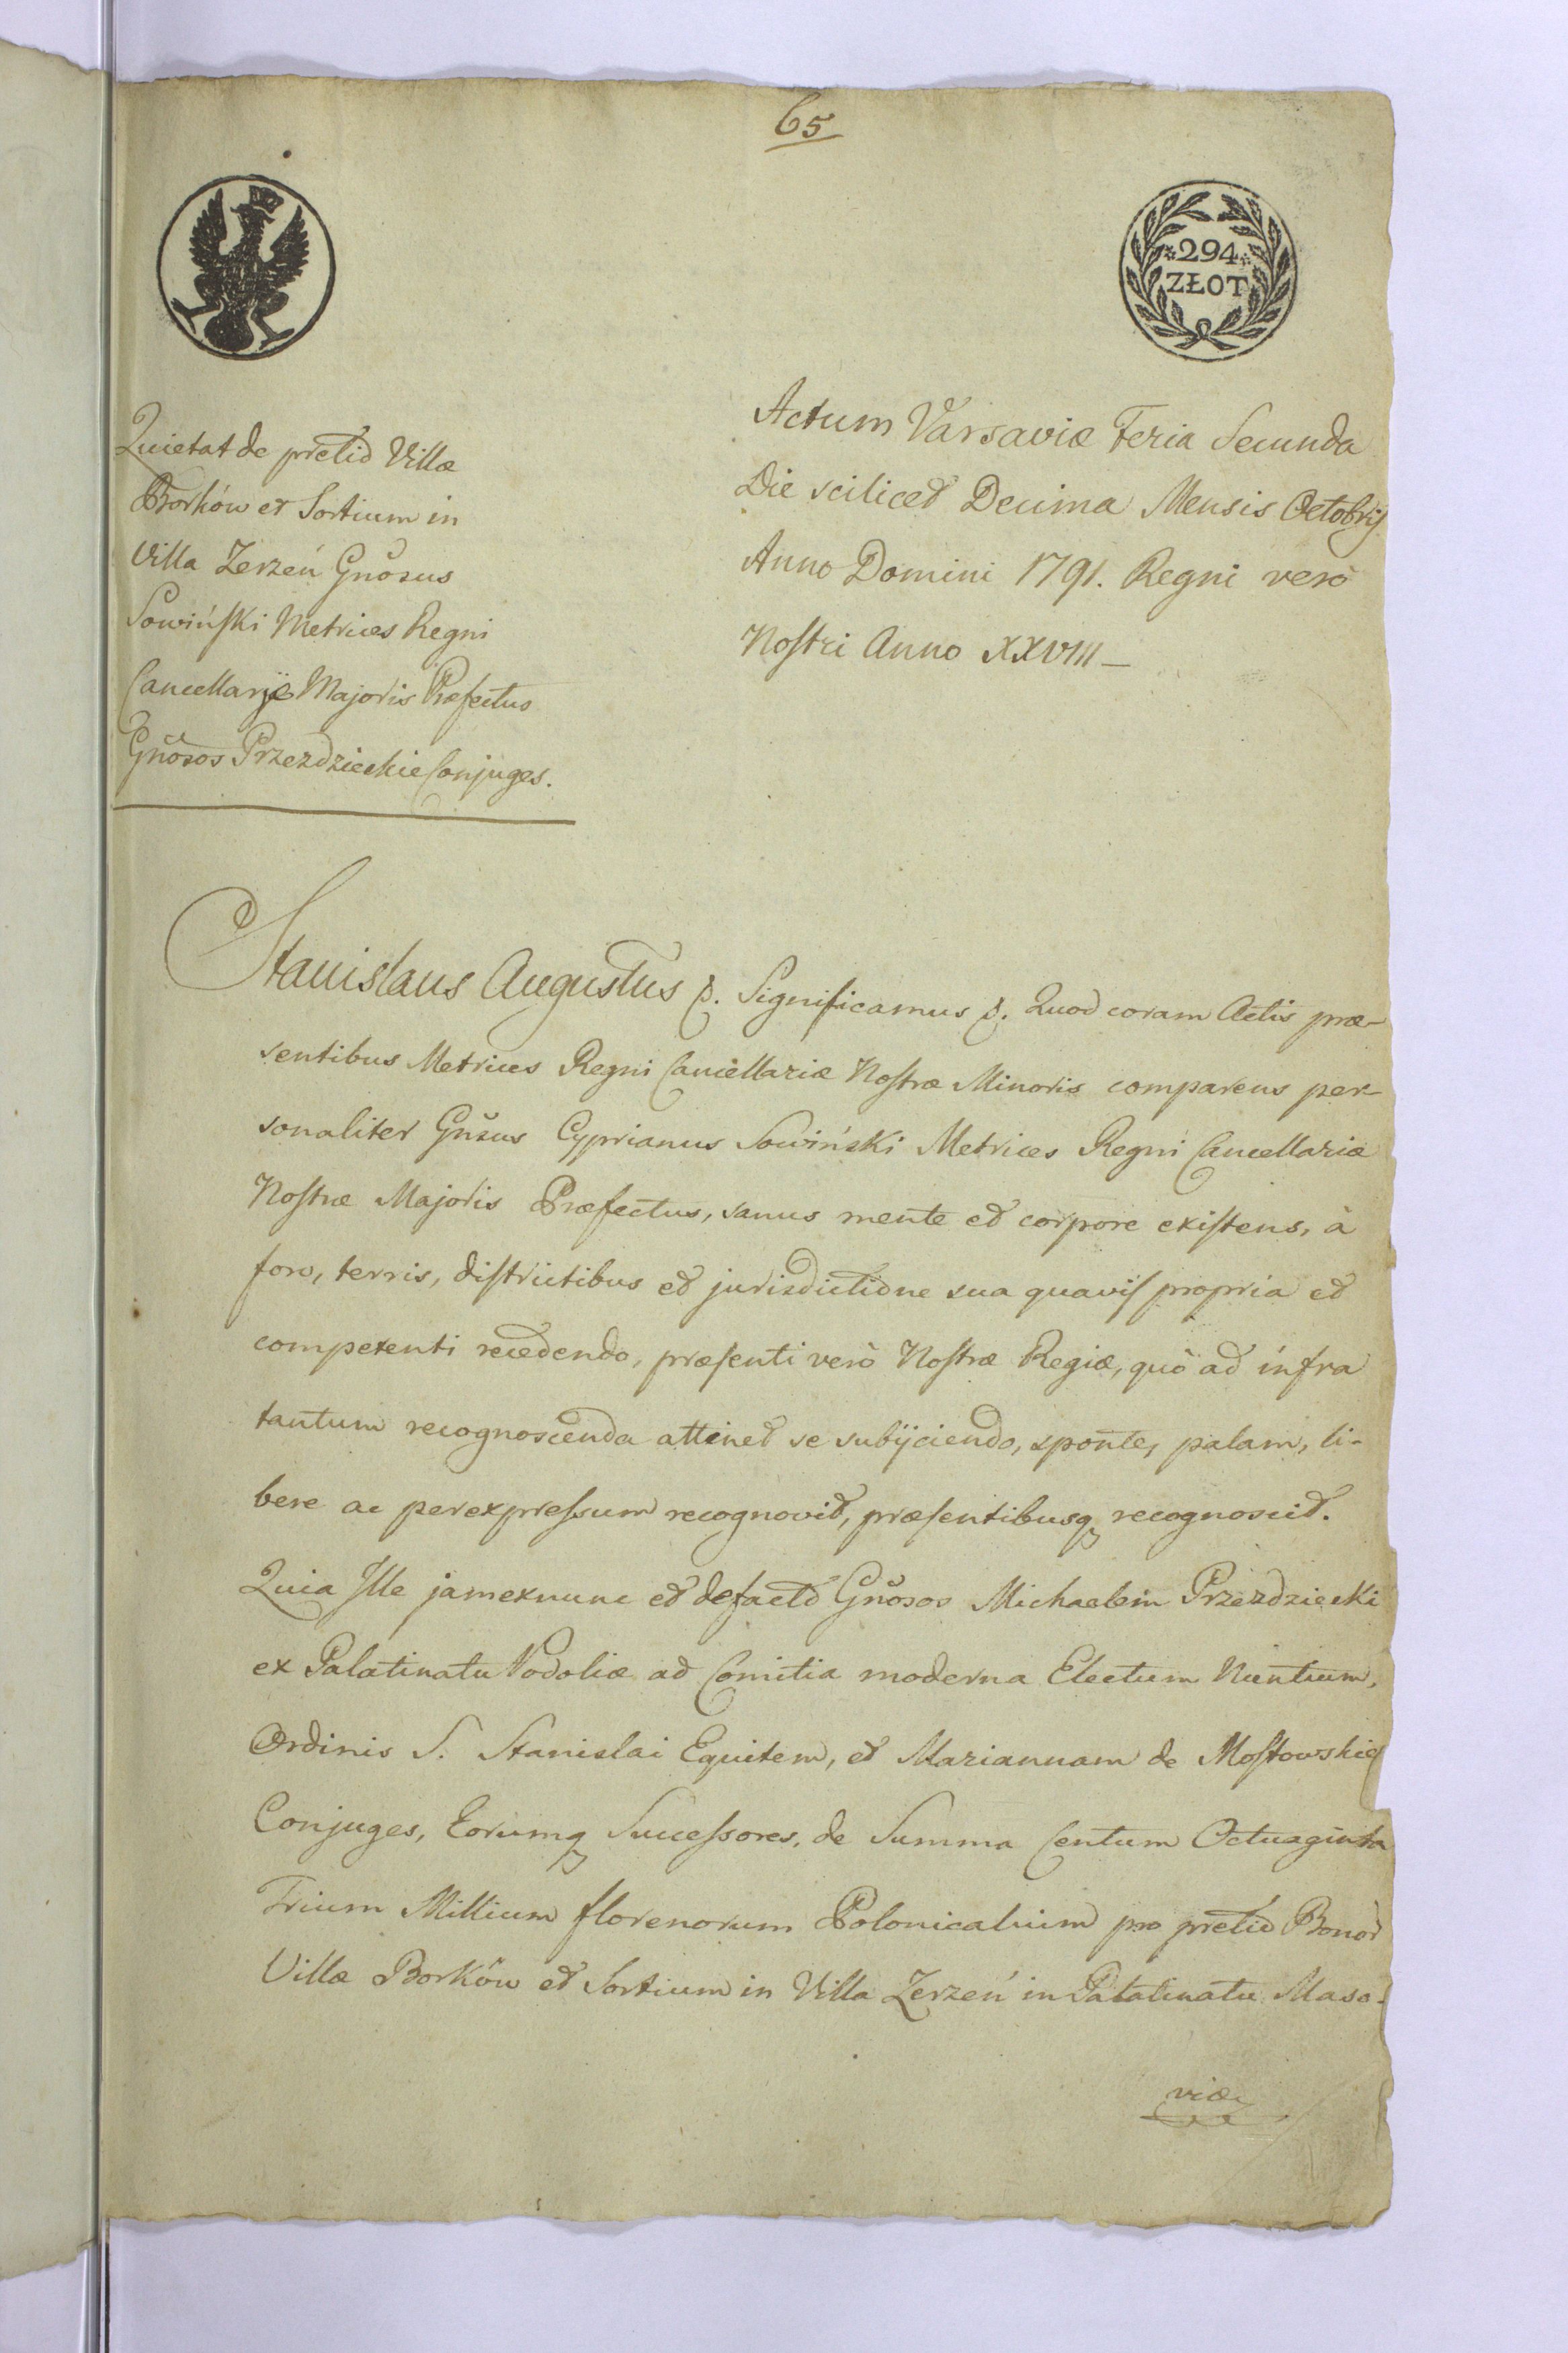 65
294
ZŁOT
Quietat de pretio Villæ
Borków et Sortium in
Villa Zerzeń Gnõsus
Sowiński Metrices Regni
Cancellariæ Majoris Præfectus
Gnõsos Przezdzieckie Conjuges.
Actum Varsaviæ Feria Secunda
Die scilicet Decima Mensis Octobris
Anno Domini 1791. Regni verò
Nostri Anno XXVIII
Stanislaus Augustus &. Significamus &. Quod coram Actis præ-
sentibus Metrices Regni Cancellariæ Nostræ Minoris comparens per-
sonaliter Gnõsus Cyprianus Sowiński Metrices Regni Cancellariæ
Nostræ Majoris Præfectus, sanus mente et corpore existens, à
foro, terris, districtibus et jurisdictione sua quavis propria et
competenti recedendo, præsenti verò Nostræ Regiæ, quò ad infra
tantum recognoscenda attinet se subijciendo, sponte, palam, li-
bere ac per expressum recognovit, præsentibusq recognoscit.
Quia Ille jam ex nunc et de facto Gnõsos Michaelem Przezdziecki
ex Palatinatu Podoliæ ad Comitia moderna Electum Nuntium,
Ordinis S. Stanislai Equitem, et Mariannam de Mostowskie
Conjuges, Eorumq Successores, de Summa Centum Octuaginta
Trium Millium florenorum Polonicalium pro pretio Bonor
Villæ Borków et Sortium in Villa Zerzeń in Palatinatu Maso-
viæ